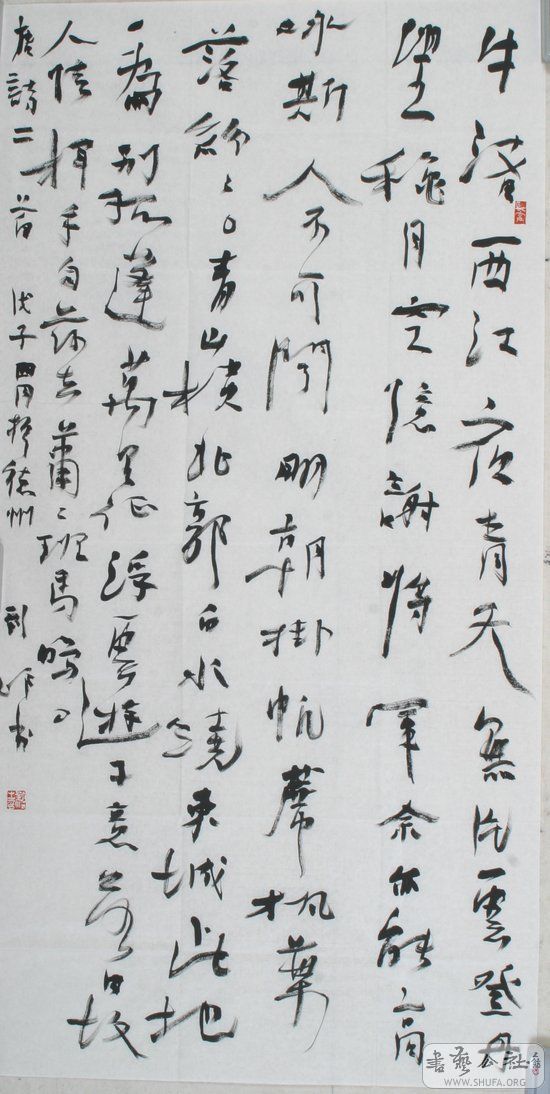 牛渚西江夜青天無片雲登舟
望穐月空憶謝將軍余亦能高
咏斯人不可聞明朝掛帆蓆楓葉
落紛〻青山橫北郭白水繞東城此地
一為別孤蓬萬里征浮雲遊子意落日故
人情揮手自茲去蕭〻班馬鳴
唐詩二首 戊子四月於德州 书
書藝公社
WWW.SHUFA.ORG